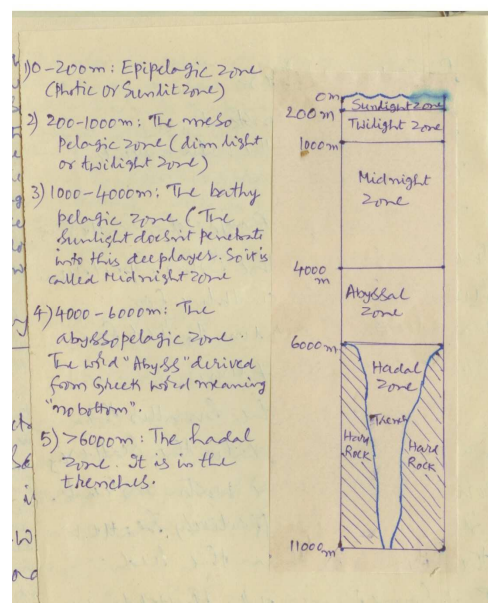 1) 0-200m: Epipelagic Zone
(Photic or Sunlit Zone)
2) 200-1000m: The meso
pelagic zone (dim light
or twilight zone)
3) 1000-4000m: The bathy
pelagic zone (The
sunlight doesn't penetrate
into this deep layer. So it is
called Midnight zone
4) 4000-6000m: The
abyssopelagic zone.
The word "Abyss" derived
from Greek word meaning
"no bottom".
5) >6000m: The hadal
zone. It is in the
trenches.
0m
Sunlight zone
200m
Twilight Zone
1000m
Midnight
Zone
4000
m
Abyssal
Zone
6000m
Hadal
Zone
Hard
Rock
Hard
Rock
11000m